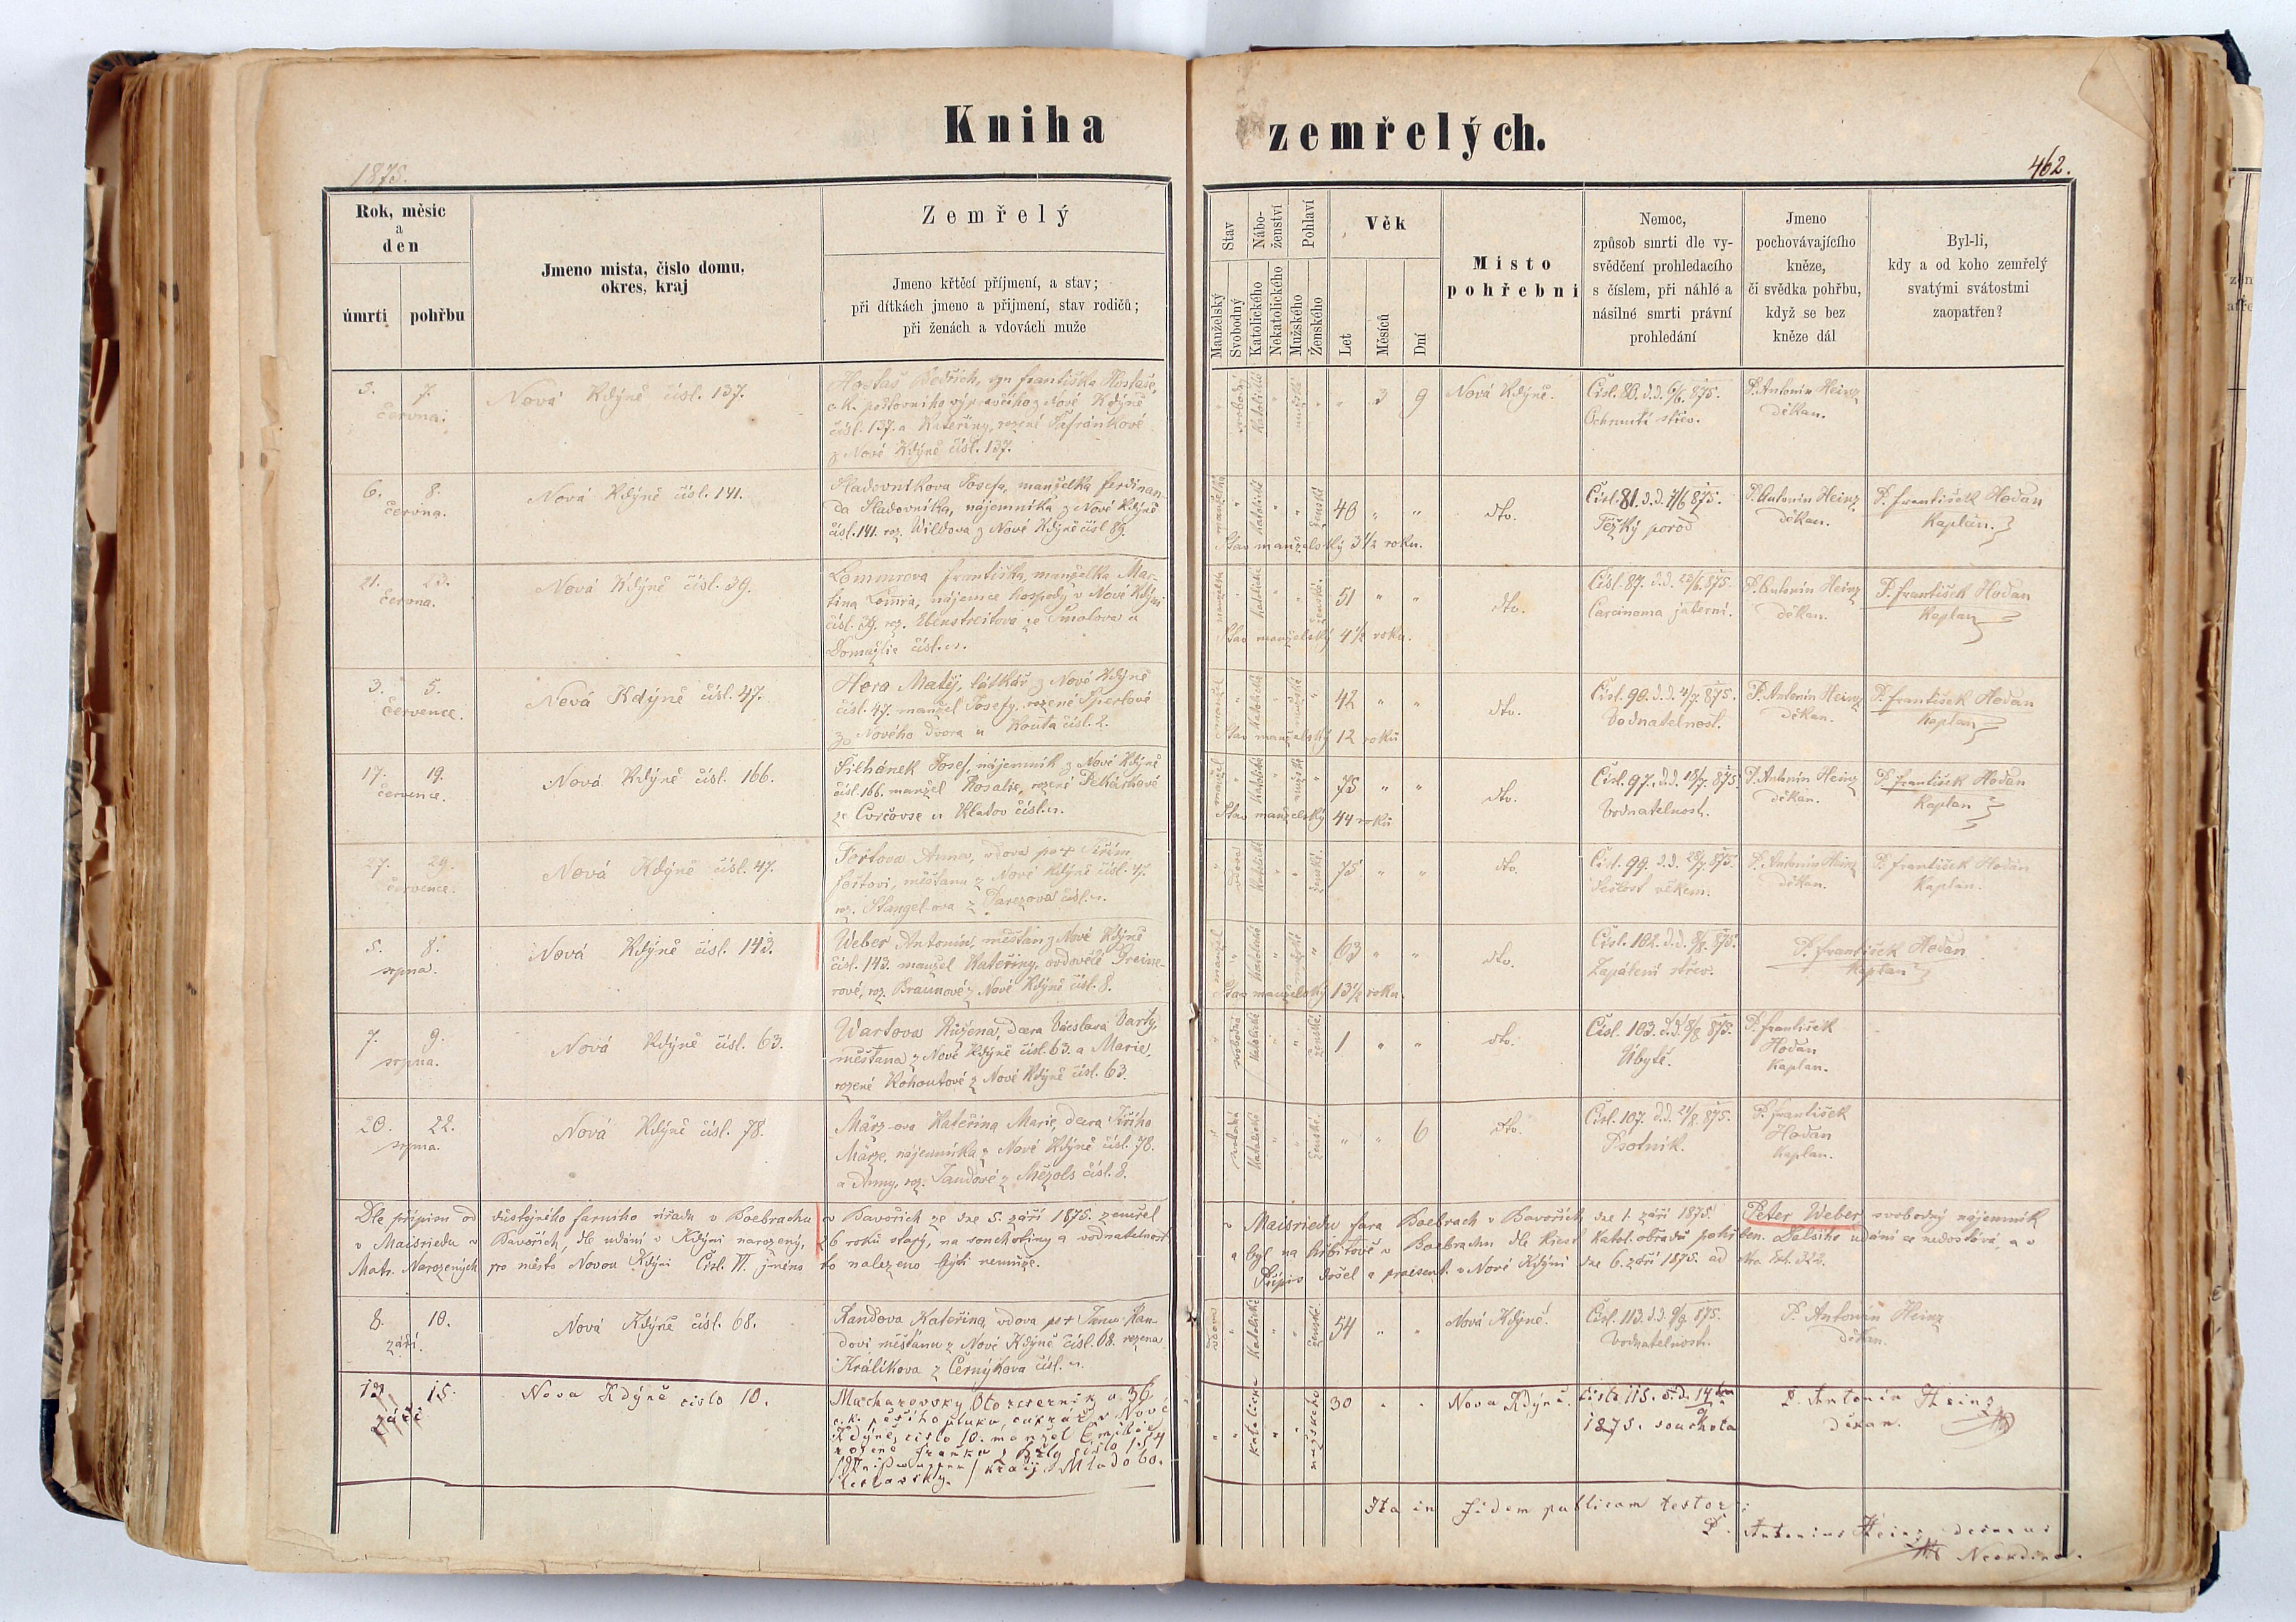 Kniha zemřelých.
1875.
462.
Rok, měsíc
a
den
úmrtí
pohřbu
Jmeno mista, číslo domu,
okres, kraj
Zemřelý
Jmeno křtěcí příjmení, a stav;
při dítkách jmeno a přijmení, stav rodičů;
při ženách a vdovách muže
Stav
Nábo-
ženství
Pohlaví
Manželský
Svobodný
Katolického
Nekatolického
Mužského
Ženského
Věk
Let
Měsíců
Dní
Místo
pohřebni
Nemoc,
způsob smrti dle vy-
svědčení prohledacího
s číslem, při náhlé a
násilné smrti právní
prohledání
Jmeno
pochovávajícího
kněze,
či svědka pohřbu,
když se bez
kněze dál
Byl-li,
kdy a od koho zemřelý
svatými svátostmi
zaopatřen?
3. 7.
června.
Nová Kdýně čísl. 137.
Hostaš Bedřich, syn Františka Hostaše,
c. k. poštovního výpravčího z Nové Kdýně
čísl. 137. a Kateřiny, rozené Šafránkové
z Nové Kdýně čísl. 137.
svobodný
katolické
mužské
" 3 9
Nová Kdýně.
Čísl. 80. d.d. 6/6. 875.
Ochrnutí střev.
P. Antonín Heinz
děkan.
6. 8.
června.
Nová Kdýně čísl. 141.
Sladovníkova Josefa, manželka Ferdinan-
da Sladovníka, nájemníka z Nové Kdýně
čísl. 141. roz. Wildova z Nové Kdýně čísl. 89.
manželka
katolické
ženské
40 " "
Stav manželský 3 1/2 roku.
dto.
Čísl. 81. d.d. 7/6 875.
Těžký porod
P. Antonín Heinz
děkan.
P. František Hodan
Kaplan.
21. 23.
června.
Nová Kdýně čísl. 39.
Lommrova Františka, manželka Mar-
tina Lomra, nájemce hospody v Nové Kdýni
čísl. 39. roz. Ebenstreitova ze Smolova u
Domažlic čísl. n.
manželka
katolické
ženské.
51 " "
Stav manželský 4 1/2 roku.
dto.
Čísl. 87. d.d. 22/6. 875.
Carcinoma jaterní.
P. Antonín Heinz
děkan.
P. František Hodan
Kaplan
3. 5.
července.
Nová Kdýně čísl. 47.
Hora Matěj, látkář z Nové Kdýně
čísl. 47. manžel Josefy, rozené Sperlové
z Nového dvora u Kouta čísl. 2.
manžel
katolické
mužské
42 " "
Stav manželský 12 roků
dto.
Čísl. 90. d.d. 4/7. 875.
Vodnatelnost.
P. Antonín Heinz
děkan.
P. František Hodan
Kaplan
17. 19.
července.
Nová Kdýně čísl. 166.
Šilhánek Josef, nájemník z Nové Kdýně
čísl. 166. manžel Rosalie, rozené Pekárkové
ze Cvrčovse u Klatov čísl. n.
manžel
katolické
mužské
75 " "
Stav manželský 44 roků
dto.
Čísl. 97. d.d. 18/7. 875.
Vodnatelnost.
P. Antonín Heinz
děkan.
P. František Hodan
Kaplan
27. 29.
července.
Nová Kdýně čísl. 47.
Foitova Anna, vdova po + Jiřím
Foitovi, měšťanu z Nové Kdýně čísl. 47.
roz. Stangel-ova z Pařezova čísl. n.
vdova
katolické
ženské.
75 " "
dto.
Čísl. 99. d.d. 28/7. 875.
Sešlost věkem.
P. Antonín Heinz
děkan.
P. František Hodan
Kaplan.
5. 8.
srpna.
Nová Kdýně čísl. 143.
Weber Antonín, měšťan z Nové Kdýně
čísl. 143. manžel Kateřiny, ovdovělé Greine-
rové, roz. Braunové z Nové Kdýně čísl. 8.
manžel
katolické
mužské
63 " "
Stav manželský 13 1/2 roku.
dto.
Čísl. 102. d.d. 8/8. 875.
Zapálení střev.
P. František Hodan
Kaplan
7. 9.
srpna.
Nová Kdýně čísl. 63.
Wartova Růžena, dcera Václava Varty,
měšťana z Nové Kdýně čísl. 63. a Marie,
rozené Kohoutové z Nové Kdýně čísl. 63.
svobodná
katolické
ženské.
1 " "
dto.
Čísl. 103. d.d. 8/8. 875.
Úbytě.
P. František
Hodan
Kaplan.
20. 22.
srpna.
Nová Kdýně čísl. 78.
März-ova Kateřina Marie, dcera Jiřího
Märze, nájemníka z Nové Kdýně čísl. 78.
a Anny, roz. Jandové z Mezols čísl. 8.
svobodná
katolické
ženské.
" " 6
dto.
Čísl. 107. d.d. 21/8. 875.
Psotník.
P. František
Hodan
Kaplan.
Dle přípisu od důstojného farního úřadu v Boebrachu v Bavořích ze dne 5. září 1875. zemřel v Maisriedu fara Boebrach v Bavořích dne 1. září 1875 Peter Weber svobodný nájemník
v Maisriedu v Bavořích, dle udání v Kdýni narozený, 26 roků starý, na souchotiny a vodnatelnost a byl na hřbitově v Boebrachu dle křest. katol. obřadu pohřben. Dalšího udání se nedostává, a v
Matr. Narozených pro město Novou Kdýni Čísl. VI. jméno to nalezeno býti nemůže. Přípis došel a praesent. v Nové Kdýni dne 6. září 1875. ad Nro. Exh. 322.
8. 10.
září.
Nová Kdýně čísl. 68.
Randova Kateřina, vdova po + Janu Ran-
dovi měšťanu z Nové Kdýně čísl. 68. rozena
Králíkova z Černýkova čísl. n.
vdova
katolické
ženské.
54 " "
Nová Kdýně.
Čísl. 113. d.d. 9/9. 875.
Vodnatelnost.
P. Antonín Heinz
děkan.
13 15.
září
Nova Kdýně cislo 10.
Macharovsky Oto reservník u 36
c. k. pěšího pluku, cukrář v Nové
Kdýně, cislo 10. manžel Emilie
rozené Franků z Bělý cislo 154
kraj Mlado bo-
leslavsky.
katolické
mužského
30 " "
Nova Kdýně.
čislo 115. d.d. 14ten/9
1875. souchota
P. Antonín Heinz
děkan.
Ita in fidem publicam testor:
P. Antonius Heinz decanus
Neokdinae.